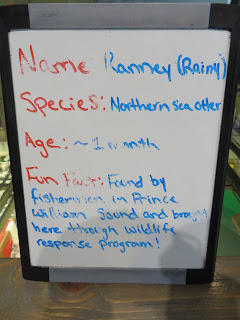 Name: Ranney (Rainy)
Species: Northern sea otter
Age: ~ 1 month
Fun Fact: Found by
fishermen in Prince
William Sound and brought
here through wildlife
response program!